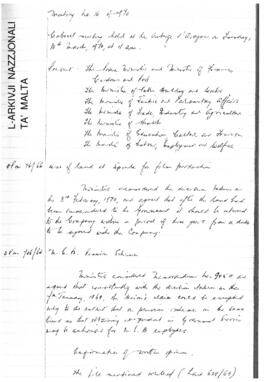 L-ARKIVJI NAZZJONALI
TA' MALTA
Meeting No. 16 of 1970
Cabinet meeting held at the Auberge d'Aragon on Tuesday,
March, 1970, at 11 a.m.
Present - The Prime Minister and Minister of Finance,
Customs and Port
The Minister of Public Building and Works
The Minister of Justice and Parliamentary Affairs
The Minister of Trade, Industry and Agriculture
The Minister of Health
The Minister of Education, Culture and Tourism
The Minister of Labour, Employment and Welfare
Use of land at for film production
Ministers considered the decision taken on
the 3rd February, 1970, and agreed that after the land had
been surrendered to the Government it should be returned
to the Company within a period of two years from a date
to be agreed with the Company.
M.E.B. Pension Scheme
Ministers considered Memorandum No. and
agreed that consistently with the decision taken on the
January, 1969, the Union's claim could be accepted
only to the extent that a pension scheme on the same
lines as that obtaining in Government Service
may be extended for M.E.B. employees.
Confirmation of written opinion
The file mentioned